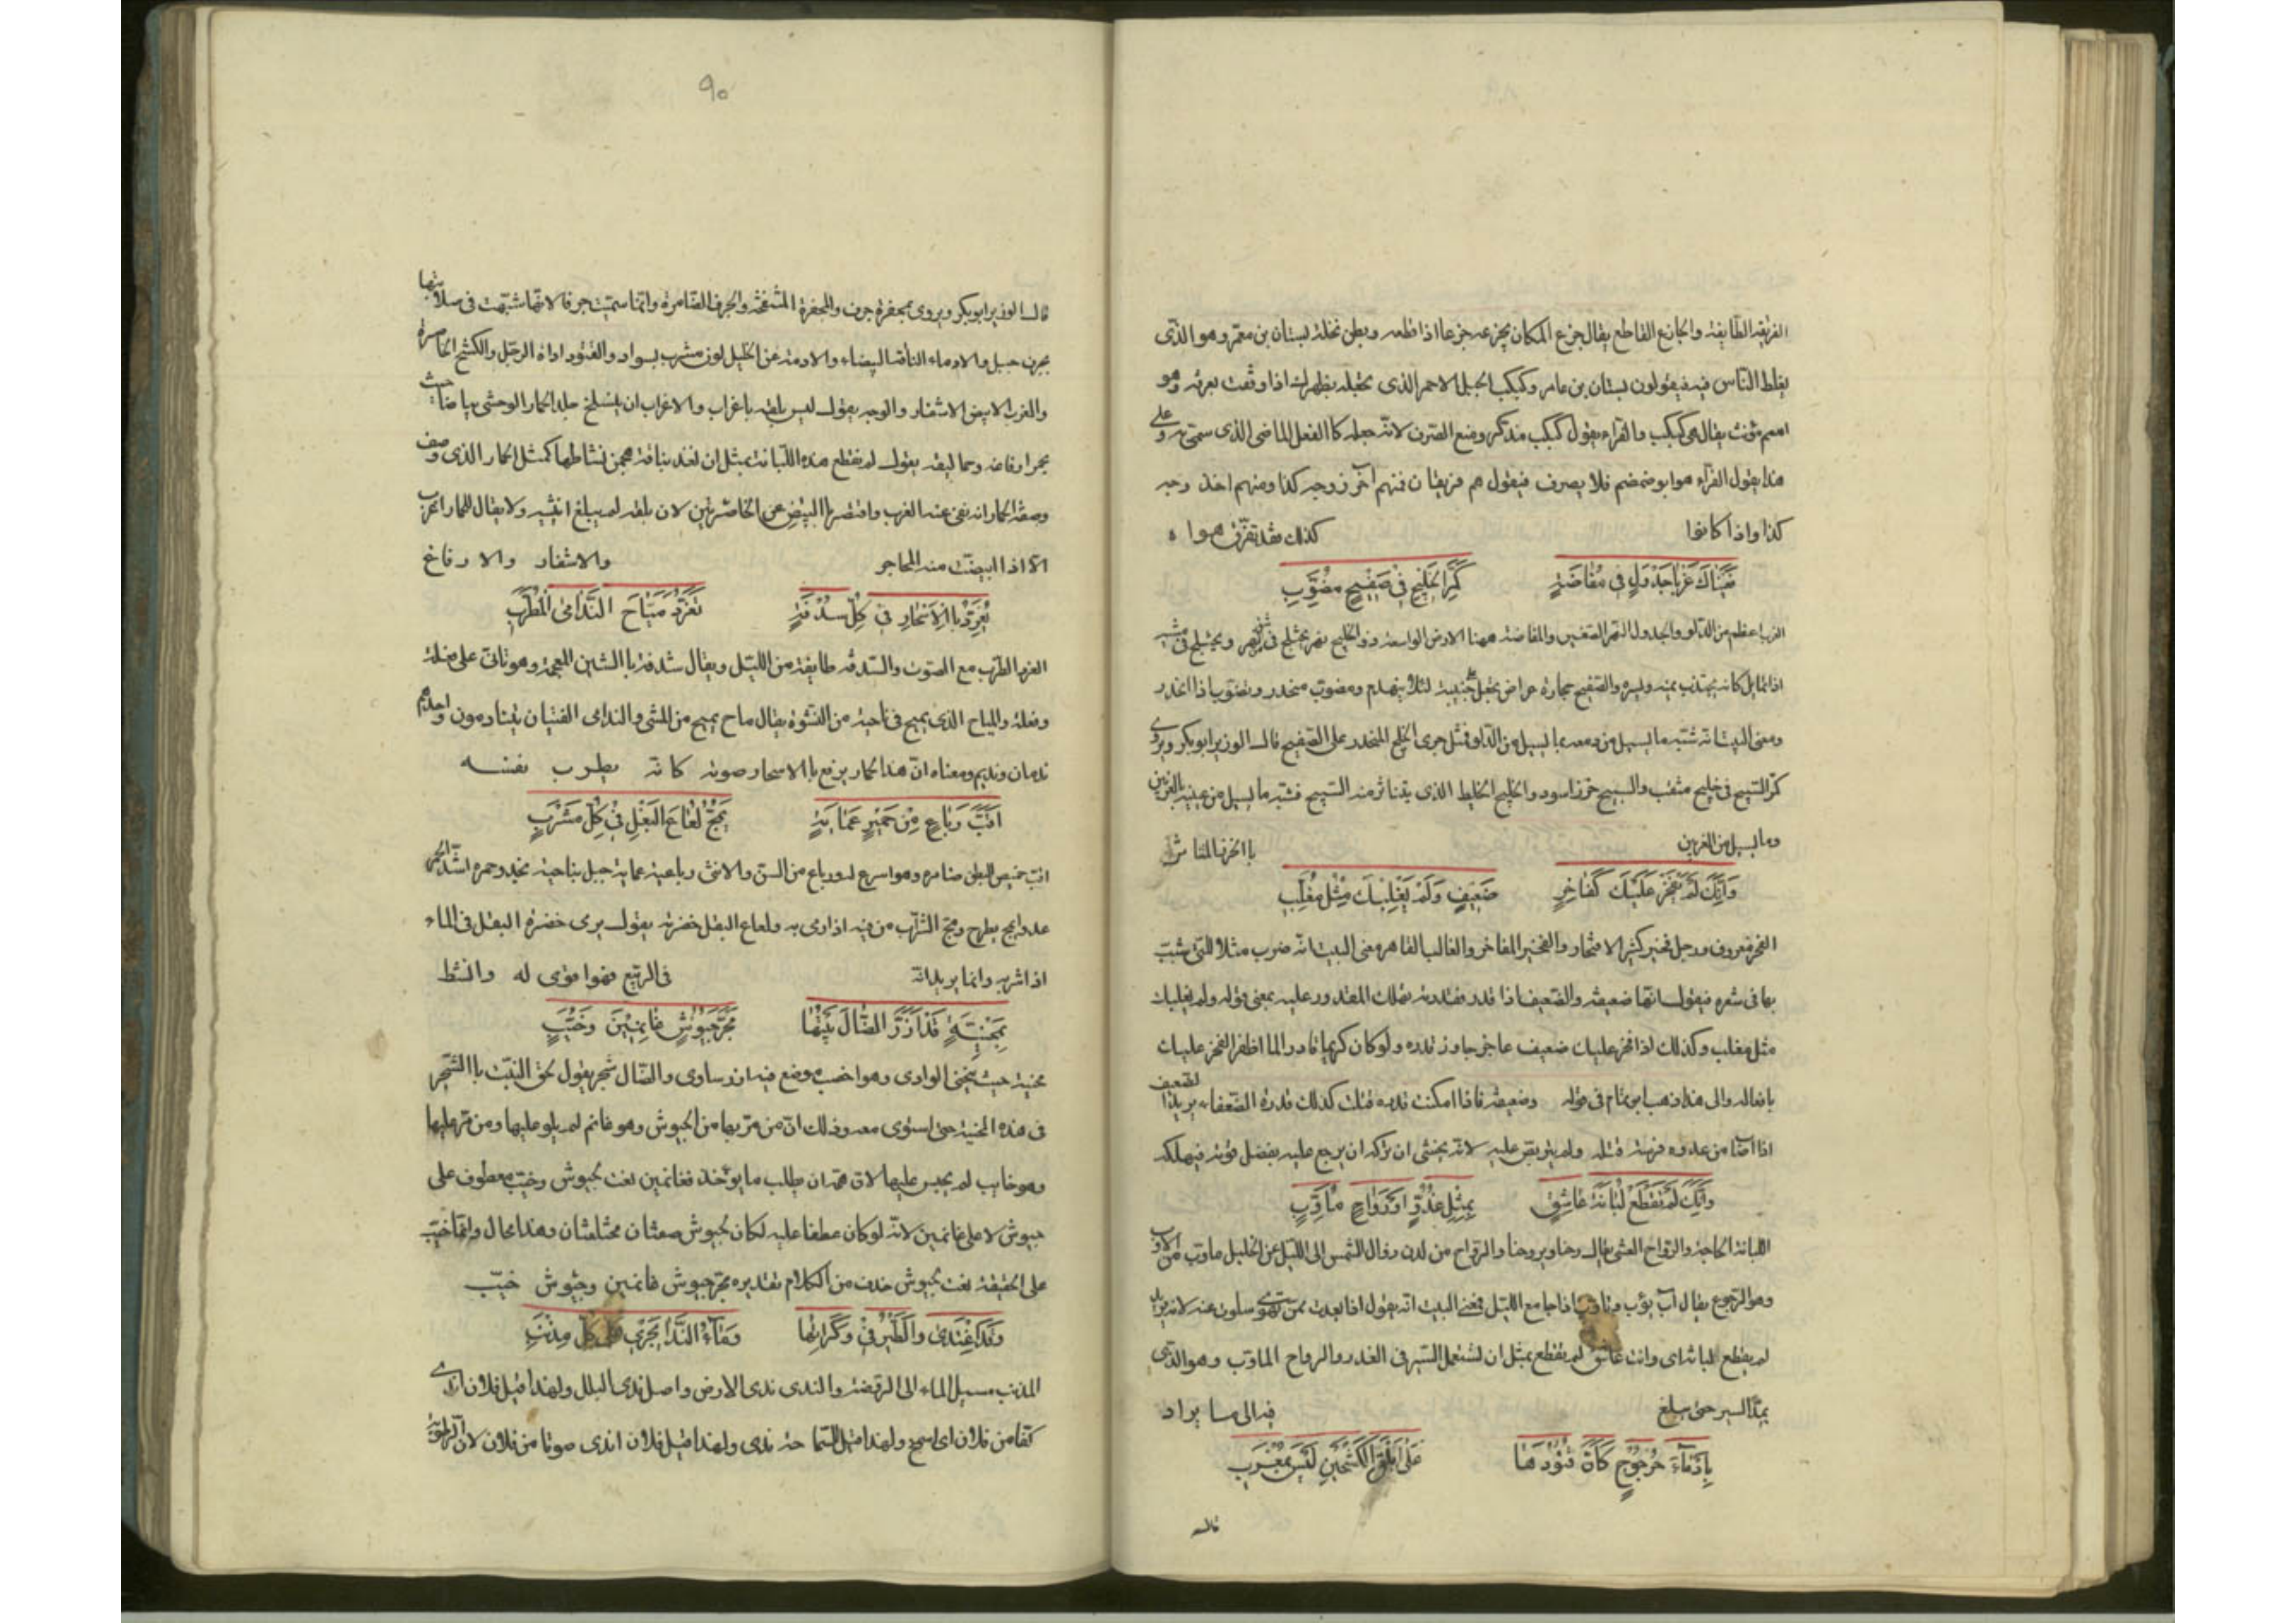 الفريقة الطايفة والجازع القاطع يقال جزع المكان يجزعه جزعا اذا قطعه وبطن نخلة لبستان بن معمر وهو الذى
يغلط الناس فيه فيقولون لبستان بن عامر وكبكب الجبل الاحمر الذى تجعله بظهرك اذا وقفت بعرفة وهو
اسم مؤنث يقال هى كبكب والفراء يقول كبكب مذكر ومنع الصرف لانه جعله كالفعل الماضى الذى سمى به وعلى
هذا يقول الفراء هوا بو ضمضم فلا يصرف فيقول هم فريقان فمنهم آخر ذ وجه كذا ومنهم اخذ وجه
كذا واذا كانوا كذلك فقد تفرق هوا
فَعَيْنَاكَ غَرْبَا جَدْوَلٍ فِى مُفَاضَةٍ كَمَرِّ الخَلِيجِ فِى صَفِيحٍ مُصَوَّبِ
الغرب اعظم من الدلو والجدول النهر الصغير والمفاضة ههنا الارض الواسعة والخليج نهر يختلج فى شق نهر ويختلج فى مشيه
اذا تمايل كانه يجتذب يمنه ويسره والصفيح حجارة عراض تجعل بجنبيه لئلا ينهدم ومصوب منحدر وتصوب اذا انحدر
ومعنى البيت انه شبه ما يسيل من دمعه بما يسيل من الدلو فمثل جرى الخليج المنحدر على الصفيح قال الوزير ابو بكر ويروى
كمر السبيح فى خليج مثقب والسبيح خرز اسود والخليج الخليط الذى يتناثر منه السبيح فشبه ما يسيل من عينيه بالغربين
وما يسيل من الغربين باالخرز المتناثر
وَاِنَّكَ لَمْ يَفْخَرْ عَلَيْكَ كَفَاخِرٍ ضَعِيفٍ وَلَمْ يَغْلِبْكَ مِثْلُ مُغَلَّبِ
الفخر معروف ورجل فخير كثير الافتخار والفخير المفاخر والغالب القاهر معنى البيت انه ضرب مثلا للتى شبب
بها فى شعره فيقول انها ضعيفة والضعيف اذا قدر فقدرته تهلك المقدور عليه بمعنى قوله ولم يغلبك
مثل مغلب وكذلك اذا فخر عليك ضعيف عاجز جاوز قدره ولو كان كريما قادرا لما اظهر الفخر عليك
بافعاله والى هذا ذهب ابن تمام فى قوله وضعيفة فاذا امكنت قدره قتلت كذلك قدرة الضعفاء يريد ان الضعيف
اذا اصاب من عدوه فرصة قتله ولم يتربص عليه لانه يخشى ان تركه ان يرجع عليه بفضل قوته فيهلكه
وَاِنَّكَ لَمْ تَقْطَعْ لُبَانَةَ عَاشِقٍ بِمِثْلِ غُدُوٍّ اَوْ رَوَاحٍ مُأَوَّبِ
اللبانة الحاجة والرواح العشى يقال رحنا ويروحنا والرواح من لدن زوال الشمس الى الليل عن الخليل ماوب من الاوب
وهو الرجوع يقال آب يؤب وتاوب اذا جا مع الليل فمعنى البيت انه يقول اذا بعدت ممن تهوى سلوت عنه لانه
لم يقطع لبانة اى وانت عاشق لم يقطع بمثل ان تستعمل السير فى الغدو والرواح الماوب وهو الذى
يمد السير حتى يبلغ فيه الى ما يراد
بِاَدْمَاءَ حُرْجُوجٍ كَاَنَّ قُتُودَهَا عَلَى اَبْلَقِ الكَشْحَيْنِ لَيْسَ بِمُغْرَبِ
قال
٩٠
قال الوزير ابو بكر ويروى بمجفرة حرف والمجفرة المنتفخة والحرف الضامرة وانما سميت حرفا لانها شبهت فى صلابتها
بحرف جبل والادماء الناقة البيضاء والادمة عن الخليل لون مشرب بسواد والقتود اداة الرحل والكشح الخاصرة
والمغرب الابيض الاشفار والوجه يقول ليس بلقه باغراب والاغراب ان ينسلخ جلد الحمار الوحشى بياضا حيث
وصف الحمار انه نفى عنه الغرب واقتصر بالبيض عن الخاصرتين لان بلقه لم يبلغ انثييه ولا يقال للحمار اغرب
الا اذا ابيضت منه المحاجر والاشفار والارفاغ
يُغَرِّدُ بِالْاَسْحَارِ فِى كُلِّ سُدْفَةٍ تَغَرُّدَ مَيَّاحِ النَّدَامَى المُطَرِّبِ
الغرد الطرب مع الصوت والسدفة طايفة من الليل ويقال شدفة باالشين المعجمة وهو تاتى على فعلة
وفعلة والمياح الذى يميح فى ناحية من النشوة يقال ماح يميح من المشى والندامى الفتيان يتنادمون واحدهم
ندمان ونديم ومعناه ان هذا الحمار يرفع باالاسحار صوته كانه يطرب نفسه
اَقَبَّ رَبَاعٍ مِنْ حَمِيرِ عَمَايَةٍ يَمُجُّ لُعَاعَ البَقْلِ فِى كُلِّ مَشْرَبِ
اقب خميص البطن ضامره وهو اسرع له ورباع من السن والانثى رباعية عماية جبل بناحية نجد وحمره اشد الحمر
عدوا يمج يطرح ومج الشراب من فيه اذا رمى به ولعاع البقل خضرته يقول يرى خضرة البقل فى الماء
اذا شربه وانما يريد انه فى الربيع فهوا قوى له وانشط
بِمَحْنِيَةٍ قَدْ اَزَّرَ الضَّالَ نَبْتُهَا مَجَرَّ جُيُوشٍ غَانِمِيْنَ وَخُيَّبِ
محنية حيث ينحنى الوادى وهو اخصب موضع فيه ازر ساوى والضال شجر يقول لحق النبت باالشجر
فى هذه المحنية حتى استوى معه وذلك ان من مر بها من الجيوش وهو غانم لم يلو عليها ومن مر عليها
وهو خايب لم يحبس عليها لان همه ان يطلب ما يؤخذ فغانمين نعت لجيوش وخيب معطوف على
جيوش لا على غانمين لانه لو كان عطفا عليه لكان لجيوش صفتان مختلفتان وهذا محال وانما خيب
على الحقيقة نعت لجيوش حذف من الكلام تقديره مجر جيوش غانمين وجيوش خيب
وَقَدْ اَغْتَدِى وَالطَّيْرُ فِى وُكُرَاتِهَا وَمَاءُ النَّدَا يَجْرِى عَلَى كُلِّ مِذْنَبِ
المذنب مسيل الماء الى الروضة والندى ندى الارض واصل ندى البلل ولهذا قيل فلان اندى
كفا من فلان اى اسمح ولهذا قيل فلان اندى صوتا من فلان